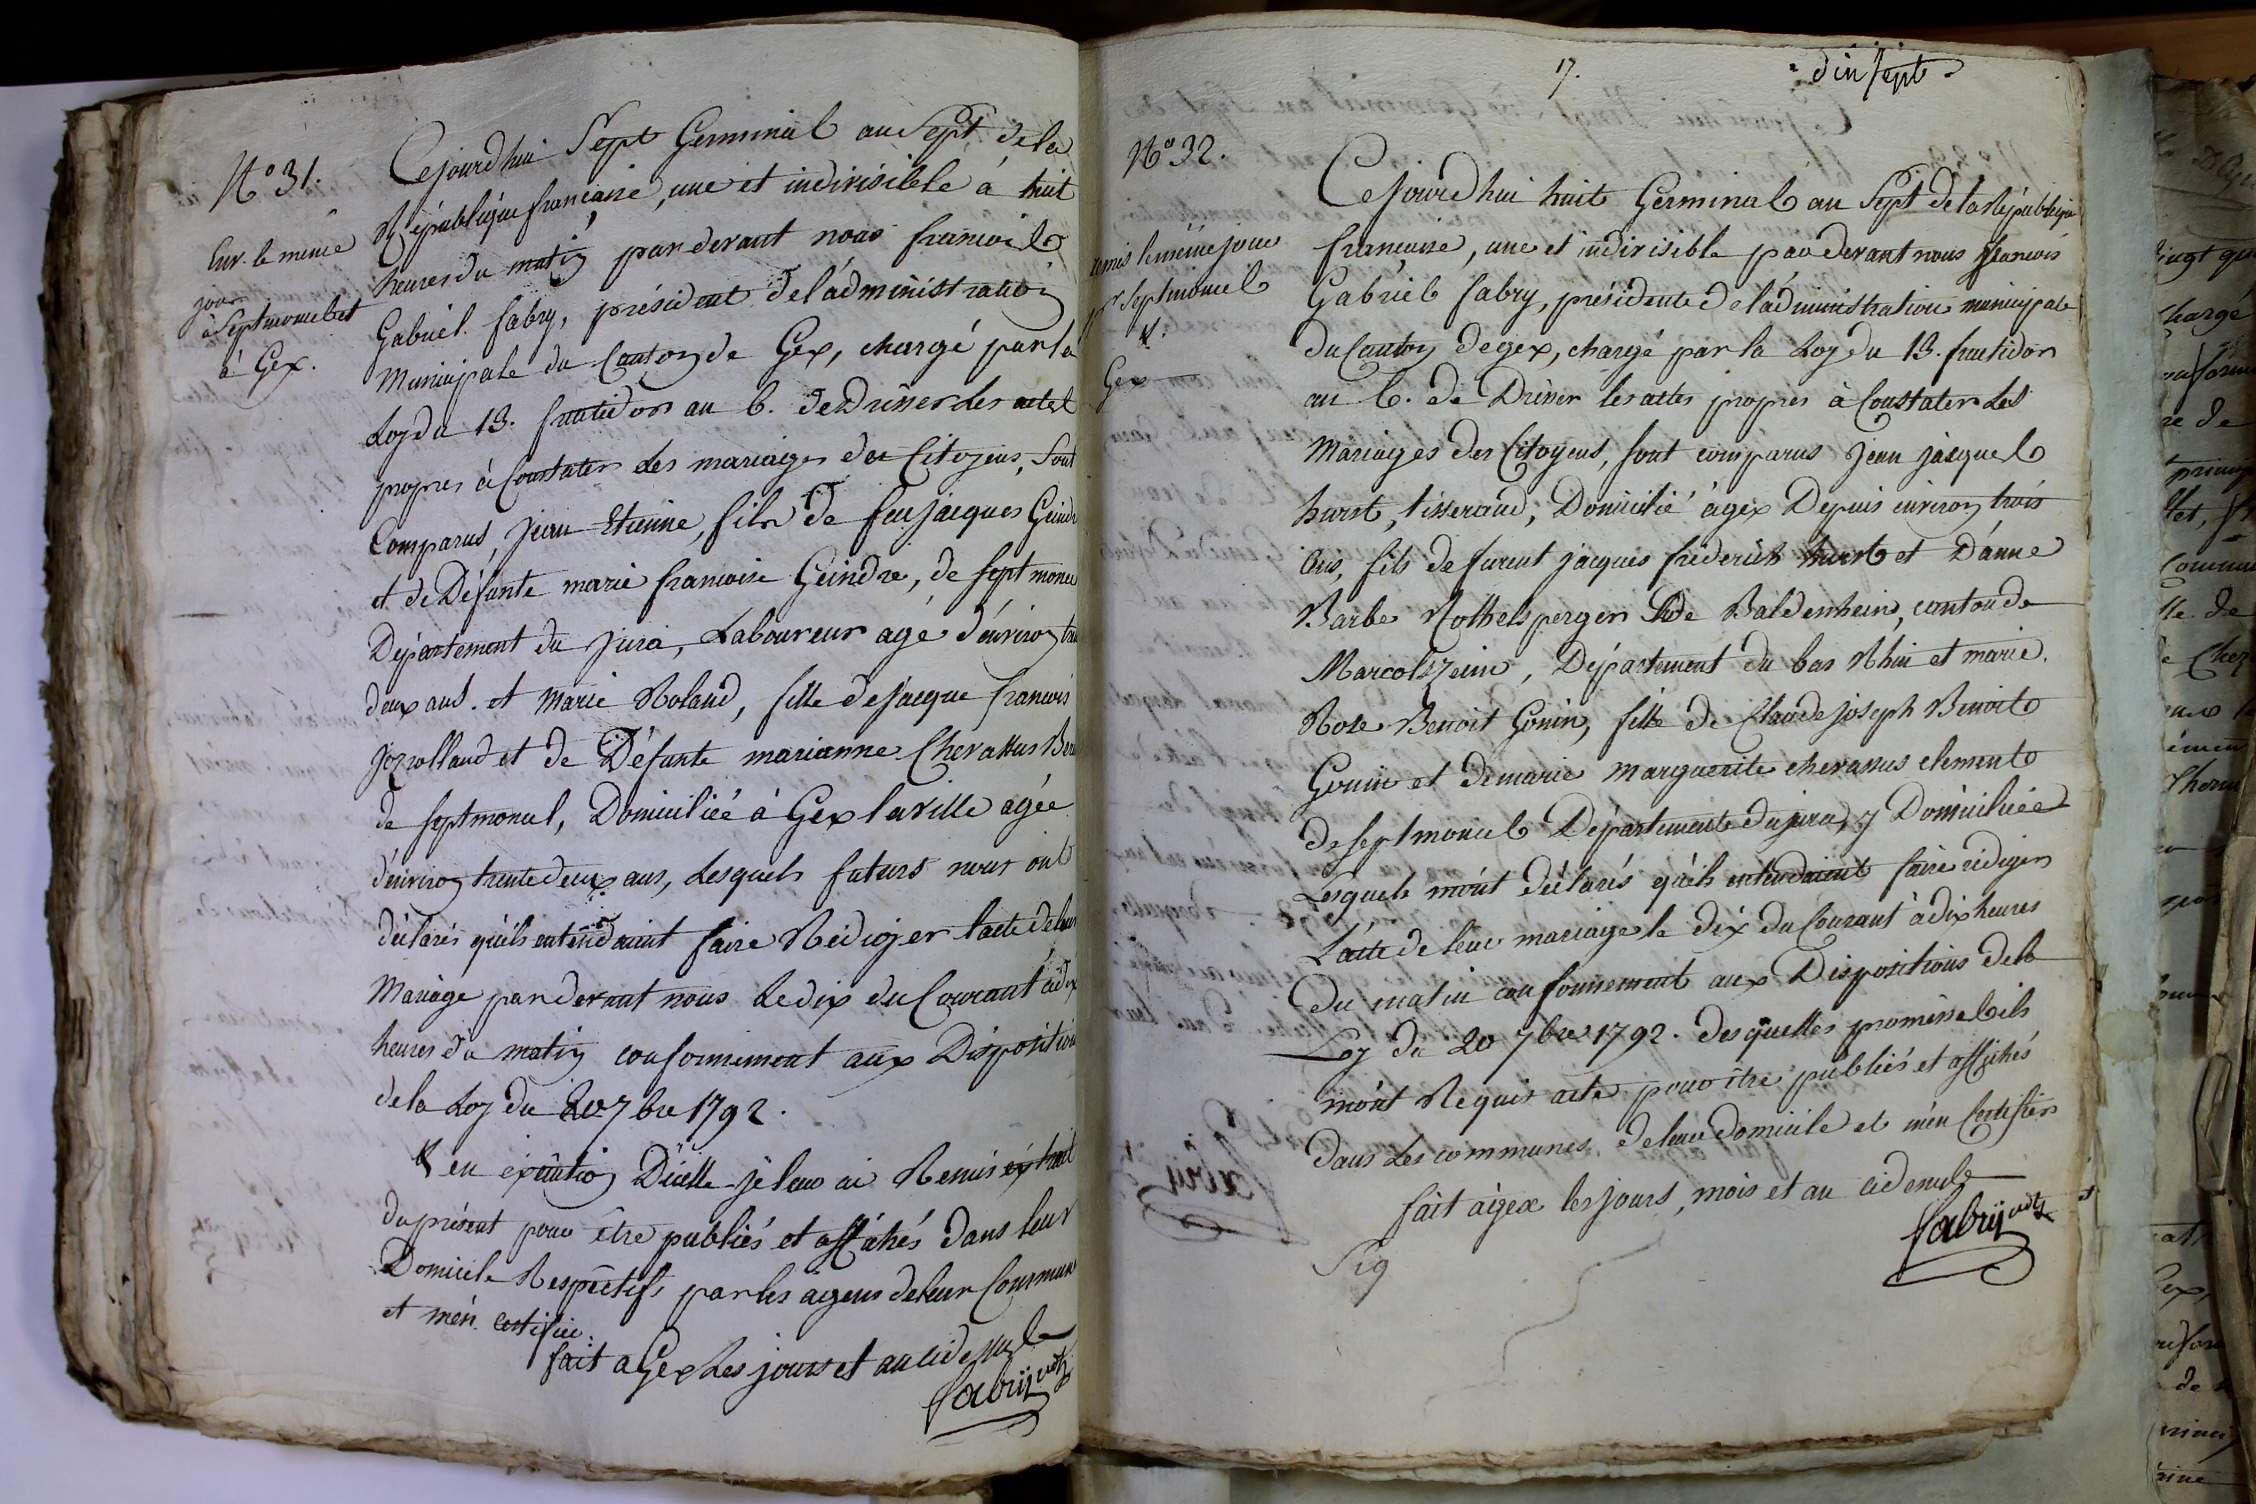 N° 31.
Env. le même
jour
à Septmoncel et
à Gex.
Cejourdhui Sept Germinal an Sept de la
République francaise, une et indivisible à huit
heures du matin pardevant nous francois
Gabriel fabry, président de l'administration
Municipale du Canton de Gex, chargé par la
Loy du 13. fructidor an 6. de Drésser les actes
propres à Constater Les mariages des Citoyens, Sont
Comparus, Jean Etienne, fils de feu jacques Geindre
et de Défunte marie francoise Geindre, de septmoncel
Département du jura, Laboureur agé d'environ
deux ans. et Marie Roland, fille de jacque francois
jozrolland et de Défunte marianne Chevassus
de septmoncel, Domiciliée à Gex la ville agée
d'environ trente deux ans, Lesquels futurs nous ont
déclarés qu'ils entendaient faire Rédiger l'acte de leur
Mariage pardevant nous Le dix du Courant à dix
heures du matin conformement aux Disposition
de la Loy du 20 7bre 1792.
& en exécution D'icelle je leur ai Remis extrait
du présent pour être publiés et affichés dans leur
Domicile Respectifs par les agens de leur Commune
et m'en certifier.
fait a Gex Les jours et an cidessus
fabry
17.
dix sept
N° 32.
remis le même jour
pr Septmoncel
&
Gex
Cejourdhui huit Germinal an Sept de la République
francaise, une et indivisible pardevant nous francois
Gabriel fabry, président de l'administration municipale
du Canton de gex, chargé par la Loy du 13. fructidor
an 6. de Drésser les actes propres à Constater Les
Mariages des Citoyens, sont comparus jean jacques
hurst, tisserand, Domicilié à gex Depuis environ trois
ans, fils de furent jacques fréderich hurst et D'anne
Barbe Rothelsperger de Baldenheim, canton de
Marcolszeim, Département du bas Rhin et marie
Rose Benoit Gonin, fille de Claude joseph Benoit
Gonin et de marie marguerite chevassus clement
de septmoncel Département du jura, y Domiciliée
Lesquels m'ont déclarés qu'ils entendaient faire rédiger
L'acte de leur mariage le dix du Courant à dix heures
Du matin conformement aux Dispositions de la
Loy du 20 7bre 1792. desquelles promésses ils
m'ont Réquis acte pour être publiés et affichés
dans Les communes de leur domicile et m'en Certifier
fait à gex les jours, mois et an cidessus
fabry
Sig